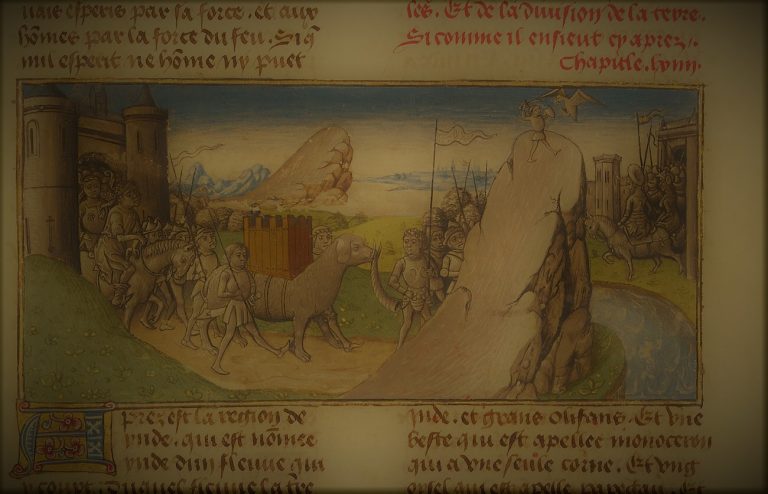 uais esperis par sa force. et aux
hōmes par la force du feu. Si q̄
nul esperit ne hōme ny puet
les. Et de la diuision de la terre.
Si comme il ensieut cy aprez.
Chapitle. lviii.
Aprez est la region de
ynde. qui est nōmee
ynde dun fleuue qui
y court. Duquel fleuue la tre
ynde. et grans olifans. Et vne
beste qui est apellee monoceron
qui a vne seule corne. Et vng
oysel qui est apelle